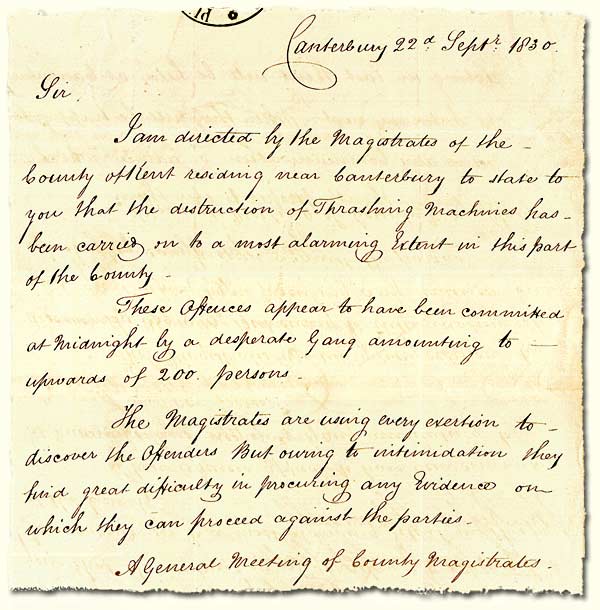 Canterbury 22d Septr 1830.
Sir,
I am directed by the Magistrates of the
County of Kent residing near Canterbury to state to
you that the destruction of Thrashing Machines has
been carried on to a most alarming Extent in this part
of the County.
These Offences appear to have been committed
at Midnight by a desperate Gang amounting to
upwards of 200 persons.
The Magistrates are using every exertion to
discover the Offenders But owing to intimidation they
find great difficulty in procuring any Evidence on
which they can proceed against the parties.
A General Meeting of County Magistrates.